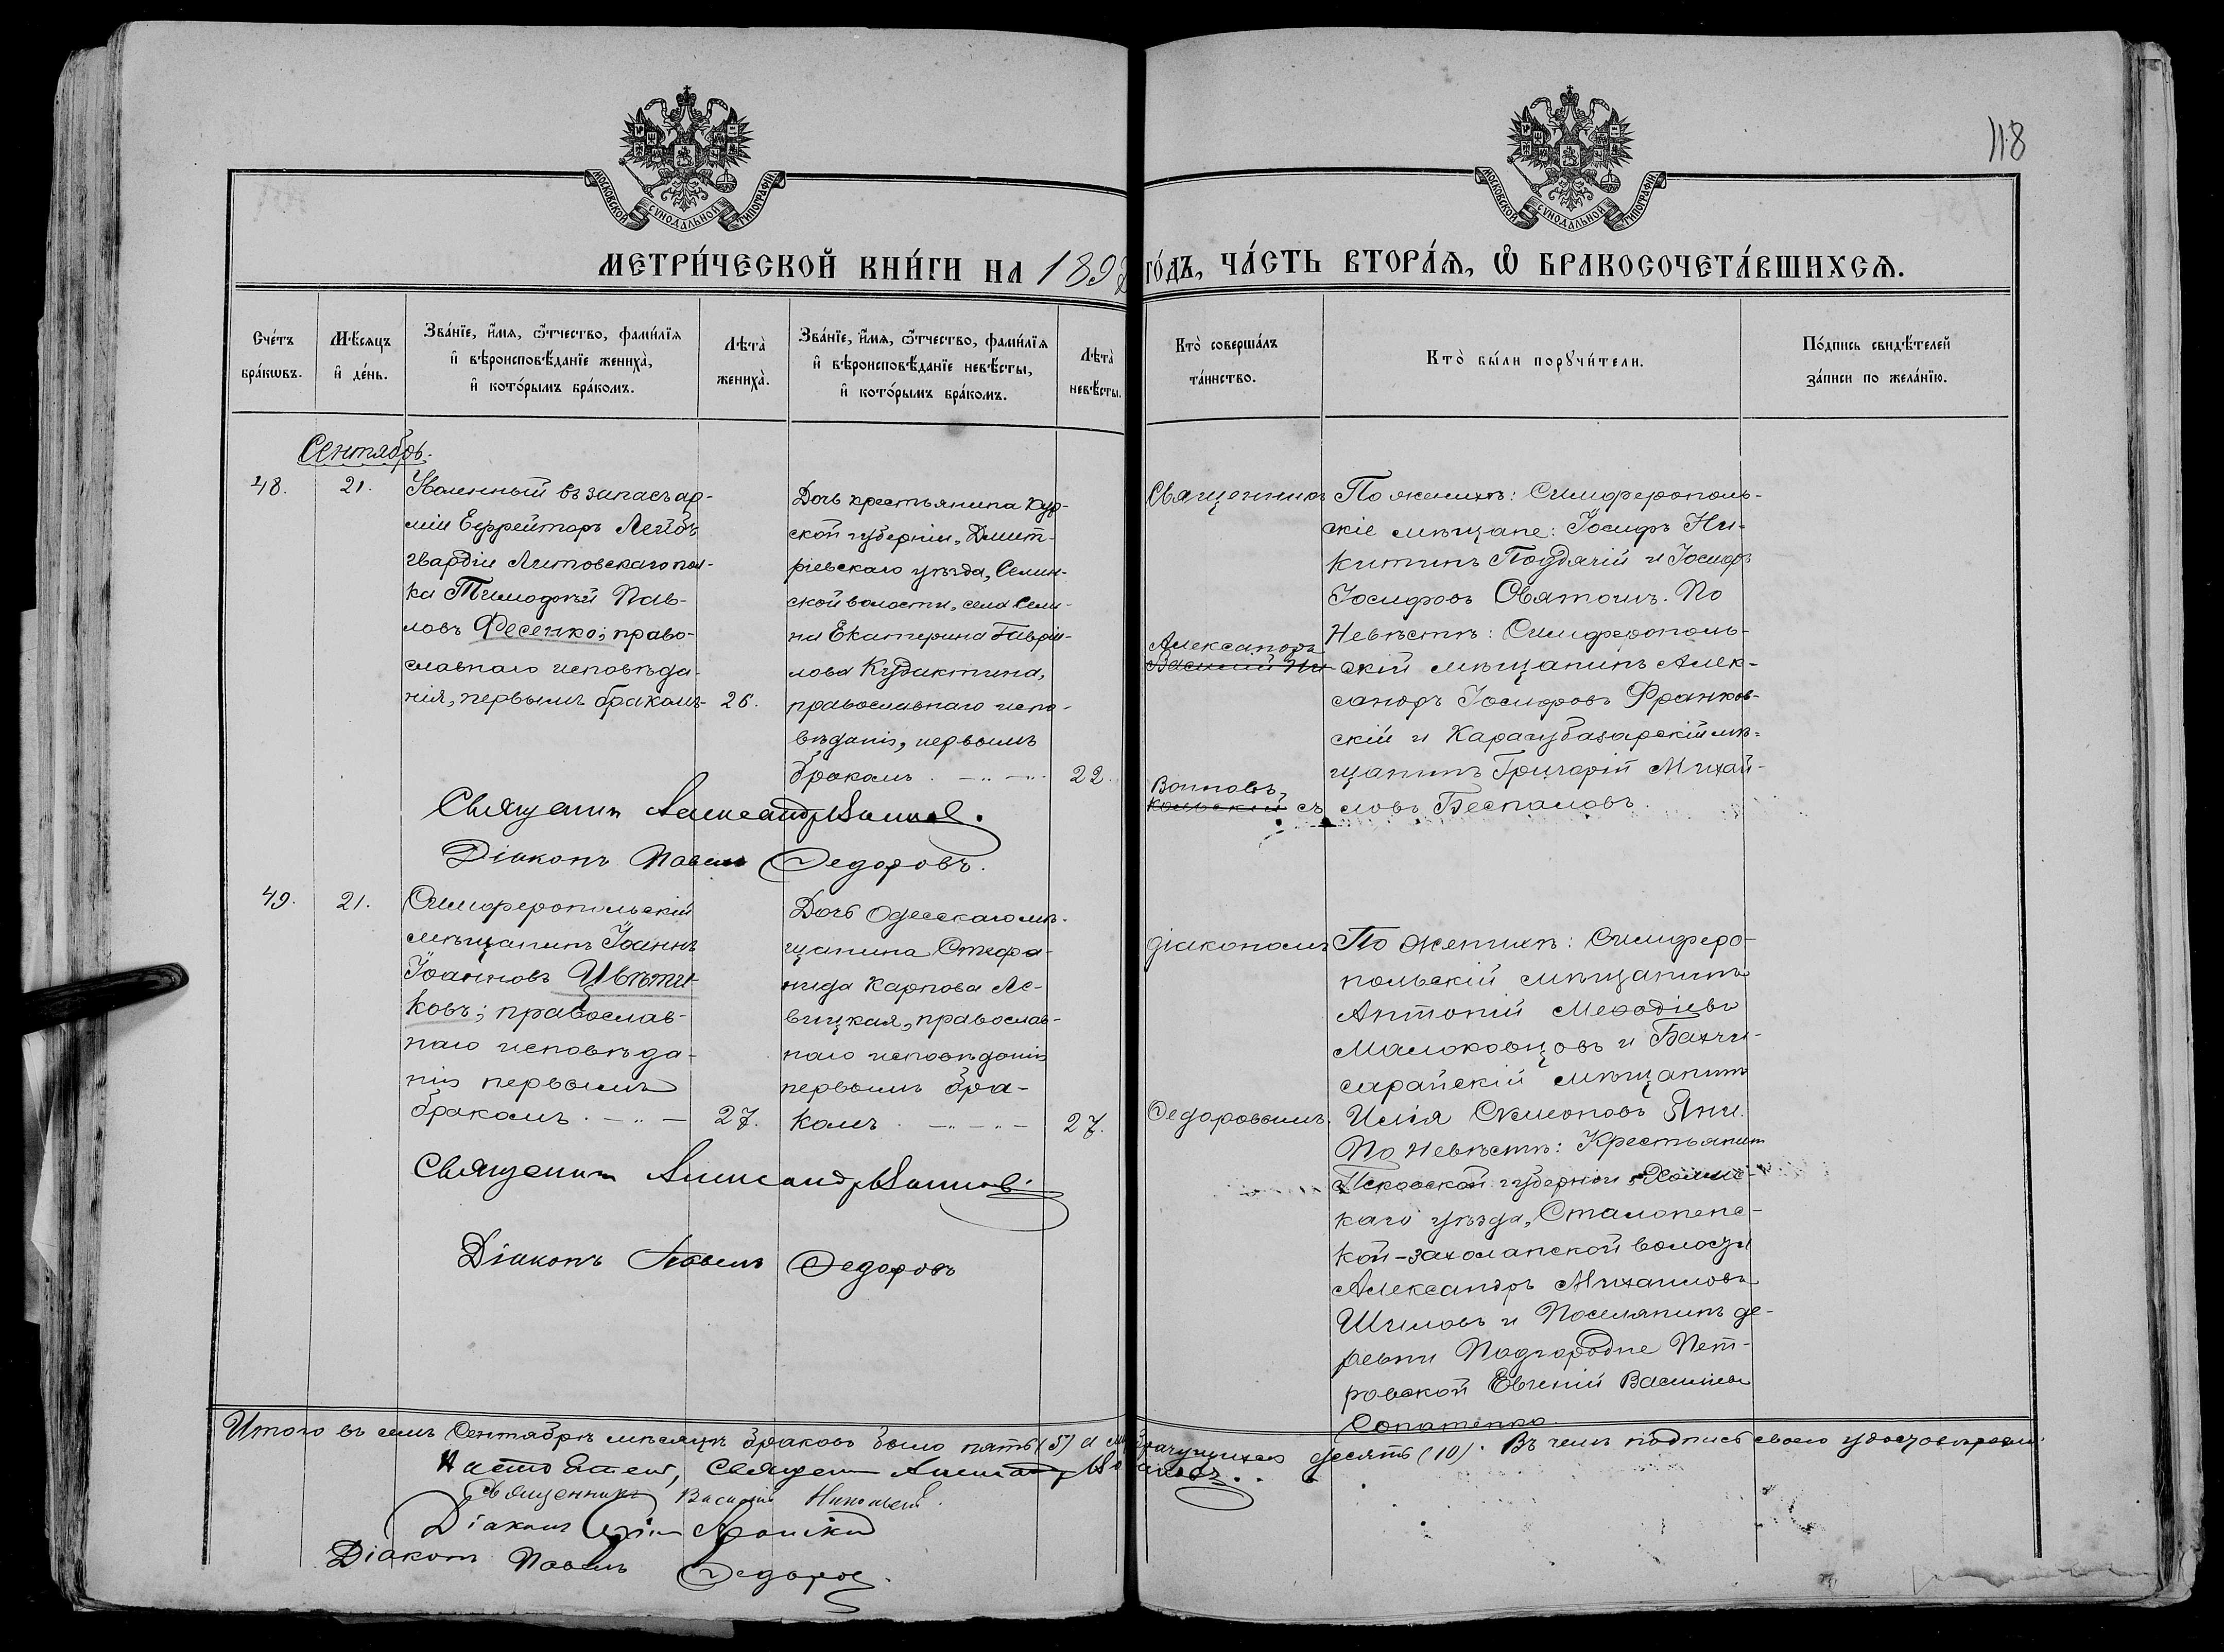 118
МОСКОВСКОЙ СѴНОДАЛЬНОЙ ТИПОГРАФІИ
МОСКОВСКОЙ СѴНОДАЛЬНОЙ ТИПОГРАФІИ
МЕТРИ́ЧЕСКОЙ КНИ́ГИ НА 1892 ГО́ДЪ, ЧА́СТЬ ВТОРА́Я, Ѽ БРАКОСОЧЕТА́ВШИХСЯ.
Сче́тъ бра́кѡвъ.
Мѣ́сяцъ и҆ де́нь.
Зва́нїе, и҆́мя, ѻ҆́тчество, фами́лїя и҆ вѣроисповѣ́данїе жениха̀, и҆ кото́рымъ бра́комъ.
Лѣта̀ жениха̀.
Зва́нїе, и҆́мя, ѻ҆́тчество, фами́лїя и҆ вѣроисповѣ́данїе невѣ́сты, и҆ кото́рымъ бра́комъ.
Лѣта̀ невѣ́сты.
Кто̀ соверша́лъ та́инство.
Кто̀ бы́ли порꙋчи́тели.
По́дпись свидѣ́телей за́писи по жела́нїю.
Сентябрь.
48.
21.
Уволенный въ запасъ ар-
міи Ефрейторъ Лейбъ
гвардіи Литовскаго пол-
ка Тимофѣй Пав-
ловъ Фесенко; право-
славнаго исповѣда-
нія, первымъ бракомъ
26.
Дочь крестьянина Кур-
ской губерніи, Дмит-
ріевскаго уѣзда, Селин-
ской волости, села Сели-
на Екатерина Гаврiи-
лова Кудактина,
православнаго испо-
вѣданія, первымъ
бракомъ
22.
Священникъ
Александръ
Василій Ни
Воиновъ,
кольскій съ
По женихѣ: Симферополь-
скіе мѣщане: Іосифъ Ни-
китинъ Поудячій и Іосифъ
Іосифовъ Святошъ. По
Невѣстѣ: Симферополь-
скій мѣщанинъ Алек-
сандръ Іосифовъ Франков-
скій и Карасубазарскій мѣ-
щанинъ Григорій Михай-
ловъ Беспаловъ.
Священникъ Александръ Воиновъ.
Діаконъ Павелъ Ѳедоровъ.
49.
21.
Симферопольскій
мѣщанинъ Іоаннъ
Іоанновъ Цвѣти-
ковъ; православ-
наго исповѣда-
нія первымъ
бракомъ.
27.
Дочь Одесскаго мѣ-
щанина Стефа-
нида Карпова Ле-
вицкая, православ-
наго исповѣданія
первымъ бра-
комъ
27.
діакономъ
Ѳедоровымъ.
По женихѣ: Симферо-
польскій мѣщанинъ
Антоній Меѳодіевъ
Малоковцовъ и Бахчи-
сарайскій мѣщанинъ
Илія Симеоновъ Яни.
По Невѣстѣ: Крестьянинъ
Псковской губерніи, Холмс-
каго уѣзда,
волости
Александръ Михаиловъ
Шиловъ и Поселянинъ де-
ревни Подгородне Пет-
ровской Евгеній Васильевъ
Сопатенко.
Священникъ Александръ Воиновъ.
Діаконъ Павелъ Ѳедоровъ
Итого въ семъ Сентябрѣ мѣсяцѣ браковъ было пять (5) а брачущихся десять (10). Въ чемъ подписью своею удостовѣряемъ:
Настоятель, Священникъ Александръ Воиновъ.
Священникъ Василій Никольскій.
Діаконъ
Діаконъ Павелъ Ѳедоровъ.